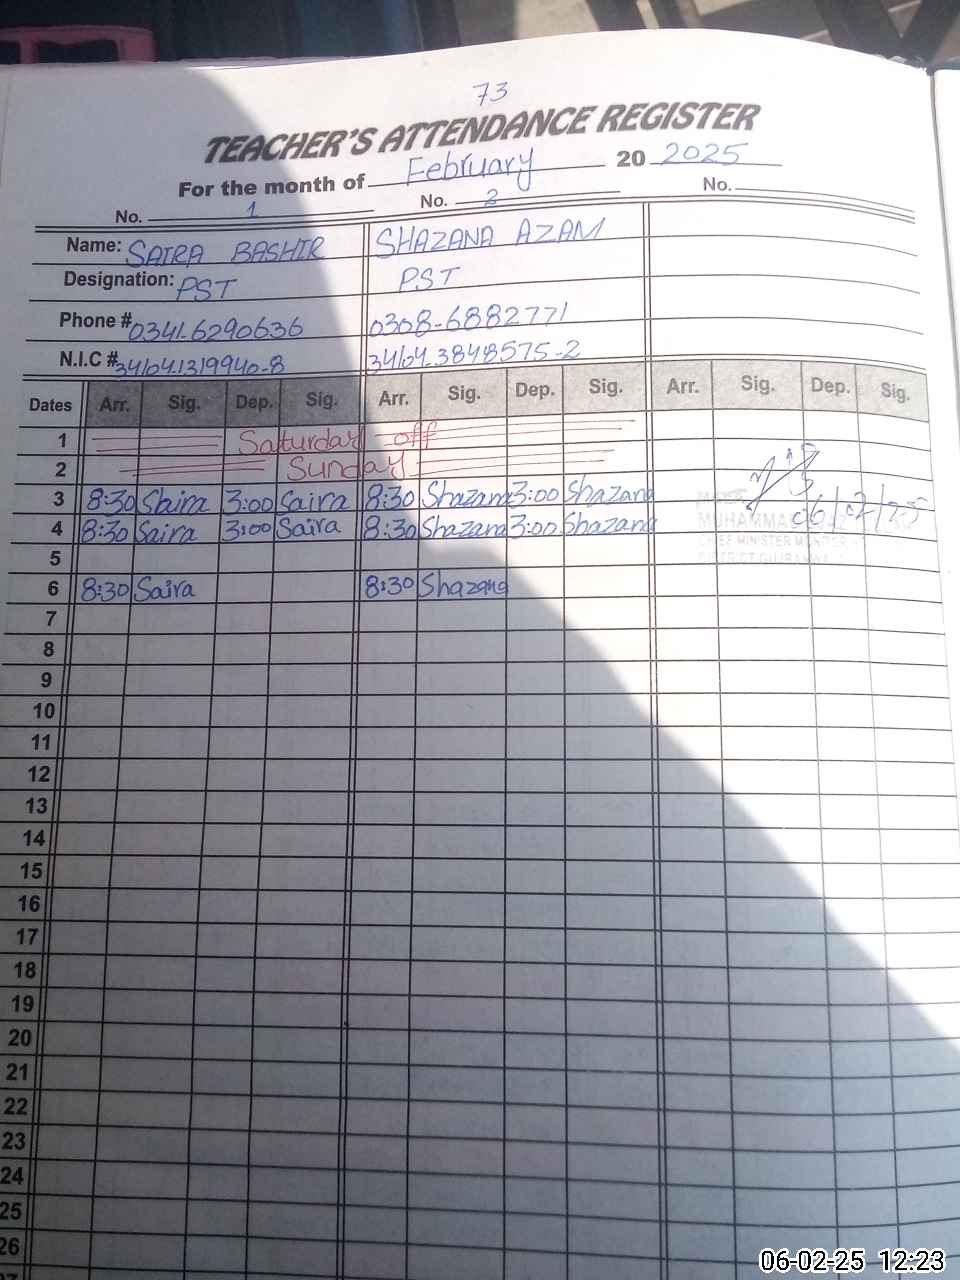 73
TEACHER'S ATTENDANCE REGISTER
For the month of February 20 2025
No. 1 No. 2 No.
Name: SAIRA BASHIR SHAZANA AZAM
Designation: PST PST
Phone # 0341-6290636 0308-6882771
N.I.C # 34104.1319940-8 34104-3848575-2
Dates Arr. Sig. Dep. Sig. Arr. Sig. Dep. Sig. Arr. Sig. Dep. Sig.
1 Saturday off
2 Sunday
3 8:30 Saira 3:00 Saira 8:30 Shazana 3:00 Shazana
4 8:30 Saira 3:00 Saira 8:30 Shazana 3:00 Shazana 06/02/25
MUHAMMAD
CHIEF MINISTER MONITOR
5
DISTRICT GUJRANWALA
6 8:30 Saira 8:30 Shazana
7
8
9
10
11
12
13
14
15
16
17
18
19
20
21
22
23
24
25
26
06-02-25 12:23